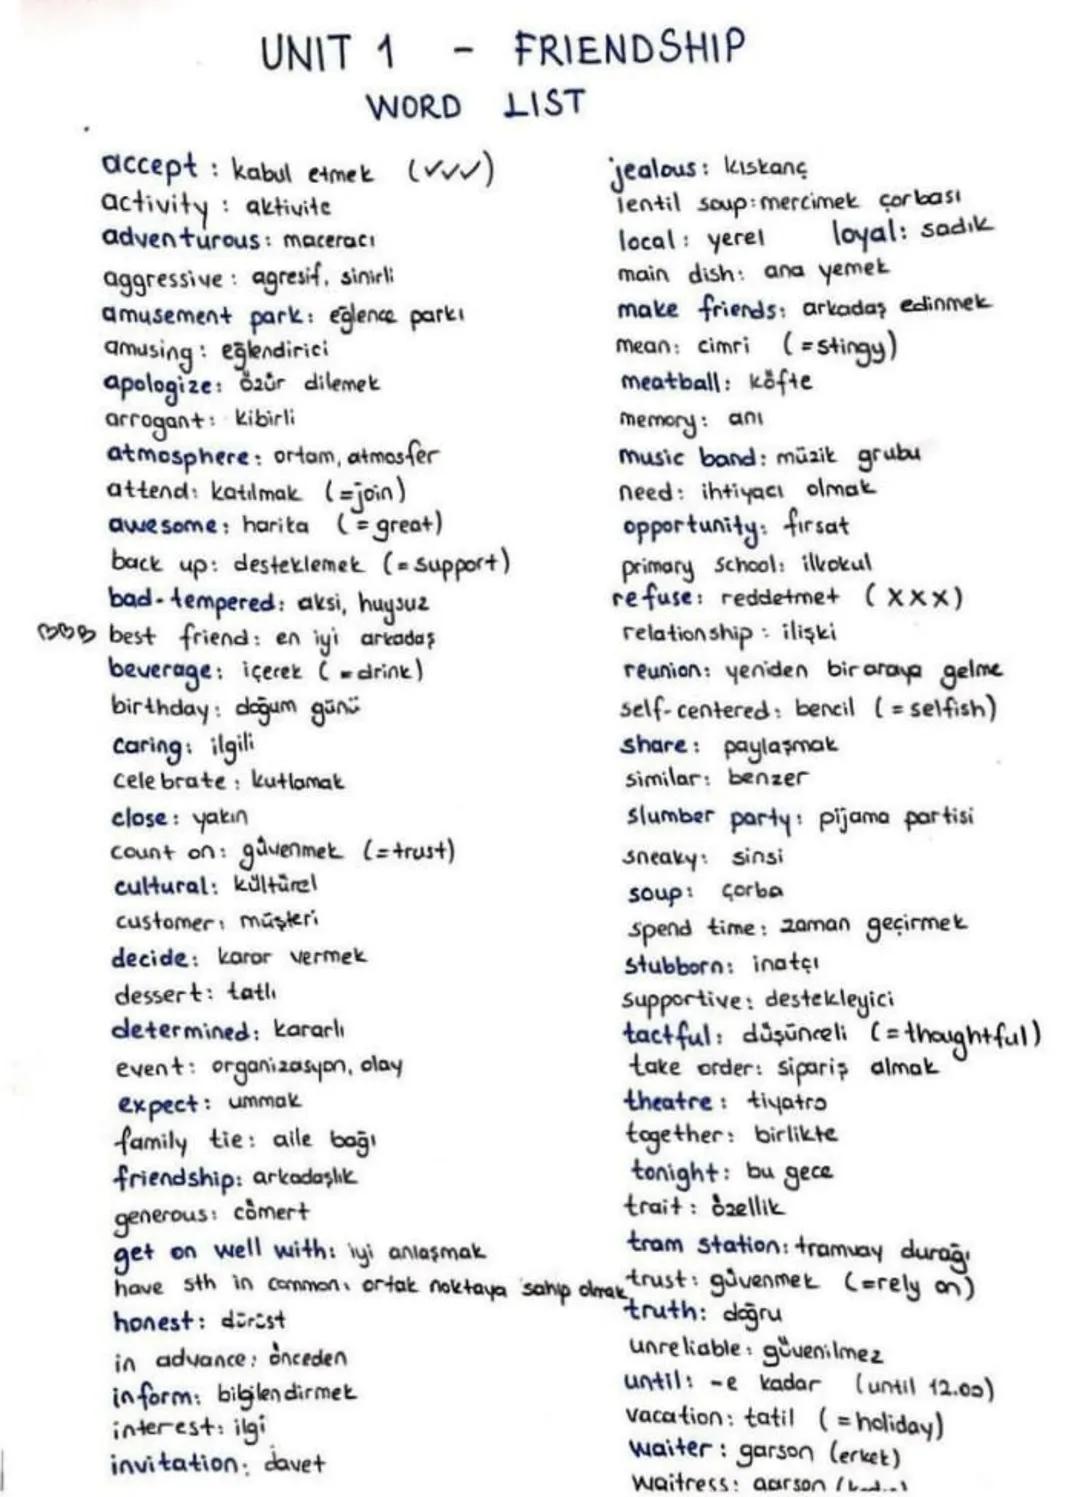 UNIT 1 - FRIENDSHIP
WORD LIST
accept : kabul etmek (✓✓✓)
activity : aktivite
adventurous : maceracı
aggressive : agresif, sinirli
amusement park : eğlence parkı
amusing : eğlendirici
apologize : özür dilemek
arrogant : kibirli
atmosphere : ortam, atmosfer
attend : katılmak (=join)
awesome : harika (= great)
back up : desteklemek (= support)
bad-tempered : aksi, huysuz
♡♡♡ best friend : en iyi arkadaş
beverage : içecek (= drink)
birthday : doğum günü
caring : ilgili
celebrate : kutlamak
close : yakın
count on : güvenmek (=trust)
cultural : kültürel
customer : müşteri
decide : karar vermek
dessert : tatlı
determined : kararlı
event : organizasyon, olay
expect : ummak
family tie : aile bağı
friendship : arkadaşlık
generous : cömert
get on well with : iyi anlaşmak
have sth in common : ortak noktaya sahip olmak
honest : dürüst
in advance : önceden
inform : bilgilendirmek
interest : ilgi
invitation : davet
jealous : kıskanç
lentil soup : mercimek çorbası
local : yerel loyal : sadık
main dish : ana yemek
make friends : arkadaş edinmek
mean : cimri (=stingy)
meatball : köfte
memory : anı
music band : müzik grubu
need : ihtiyacı olmak
opportunity : fırsat
primary school : ilkokul
refuse : reddetmet (XXX)
relationship : ilişki
reunion : yeniden bir araya gelme
self-centered : bencil (= selfish)
share : paylaşmak
similar : benzer
slumber party : pijama partisi
sneaky : sinsi
soup : çorba
spend time : zaman geçirmek
stubborn : inatçı
supportive : destekleyici
tactful : düşünceli (= thoughtful)
take order : sipariş almak
theatre : tiyatro
together : birlikte
tonight : bu gece
trait : özellik
tram station : tramvay durağı
trust : güvenmek (=rely on)
truth : doğru
unreliable : güvenilmez
until : -e kadar (until 12.00)
vacation : tatil (= holiday)
waiter : garson (erkek)
waitress : garson